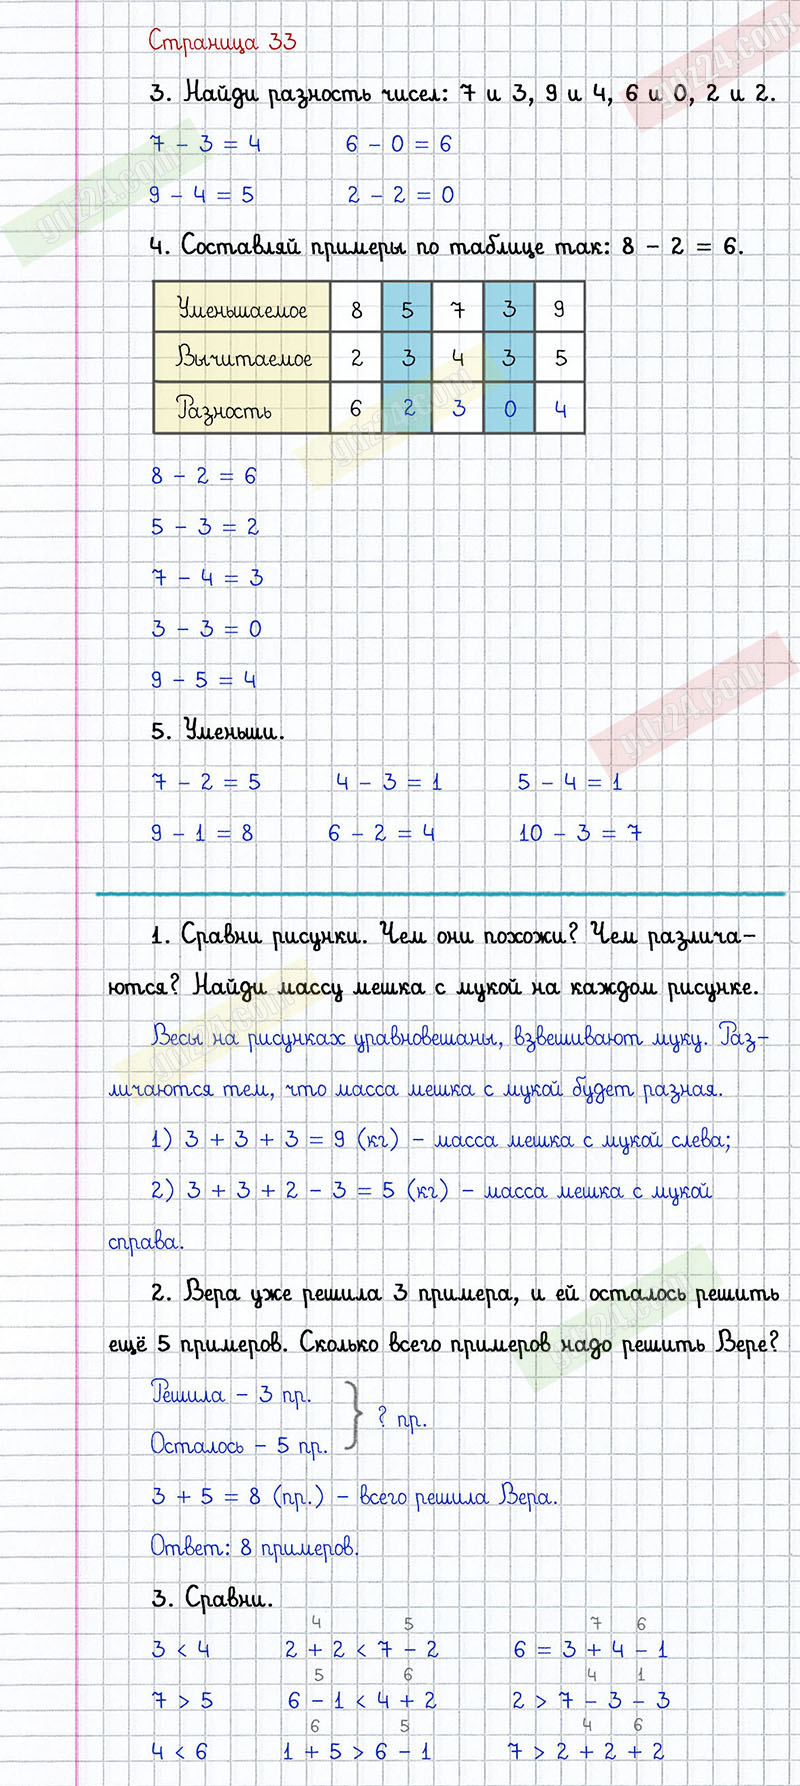 Страница 33
3. Найди разность чисел: 7 и 3, 9 и 4, 6 и 0, 2 и 2.
7 - 3 = 4 6 - 0 = 6
9 - 4 = 5 2 - 2 = 0
4. Составляй примеры по таблице так: 8 - 2 = 6.
Уменьшаемое 8 5 7 3 9
Вычитаемое 2 3 4 3 5
Разность 6 2 3 0 4
8 - 2 = 6
5 - 3 = 2
7 - 4 = 3
3 - 3 = 0
9 - 5 = 4
5. Уменьши.
7 - 2 = 5 4 - 3 = 1 5 - 4 = 1
9 - 1 = 8 6 - 2 = 4 10 - 3 = 7
1. Сравни рисунки. Чем они похожи? Чем различа-
ются? Найди массу мешка с мукой на каждом рисунке.
Весы на рисунках уравновешаны, взвешивают муку. Раз-
личаются тем, что масса мешка с мукой будет разная.
1) 3 + 3 + 3 = 9 (кг) - масса мешка с мукой слева;
2) 3 + 3 + 2 - 3 = 5 (кг) - масса мешка с мукой
справа.
2. Вера уже решила 3 примера, и ей осталось решить
ещё 5 примеров. Сколько всего примеров надо решить Вере?
Решила - 3 пр.
? пр.
Осталось - 5 пр.
3 + 5 = 8 (пр.) - всего решила Вера.
Ответ: 8 примеров.
3. Сравни.
4 5 7 6
3 < 4 2 + 2 < 7 - 2 6 = 3 + 4 - 1
5 6 4 1
7 > 5 6 - 1 < 4 + 2 2 > 7 - 3 - 3
6 5 4 6
4 < 6 1 + 5 > 6 - 1 7 > 2 + 2 + 2
gdz24.com
gdz24.com
gdz24.com
gdz24.com
gdz24.com
gdz24.com